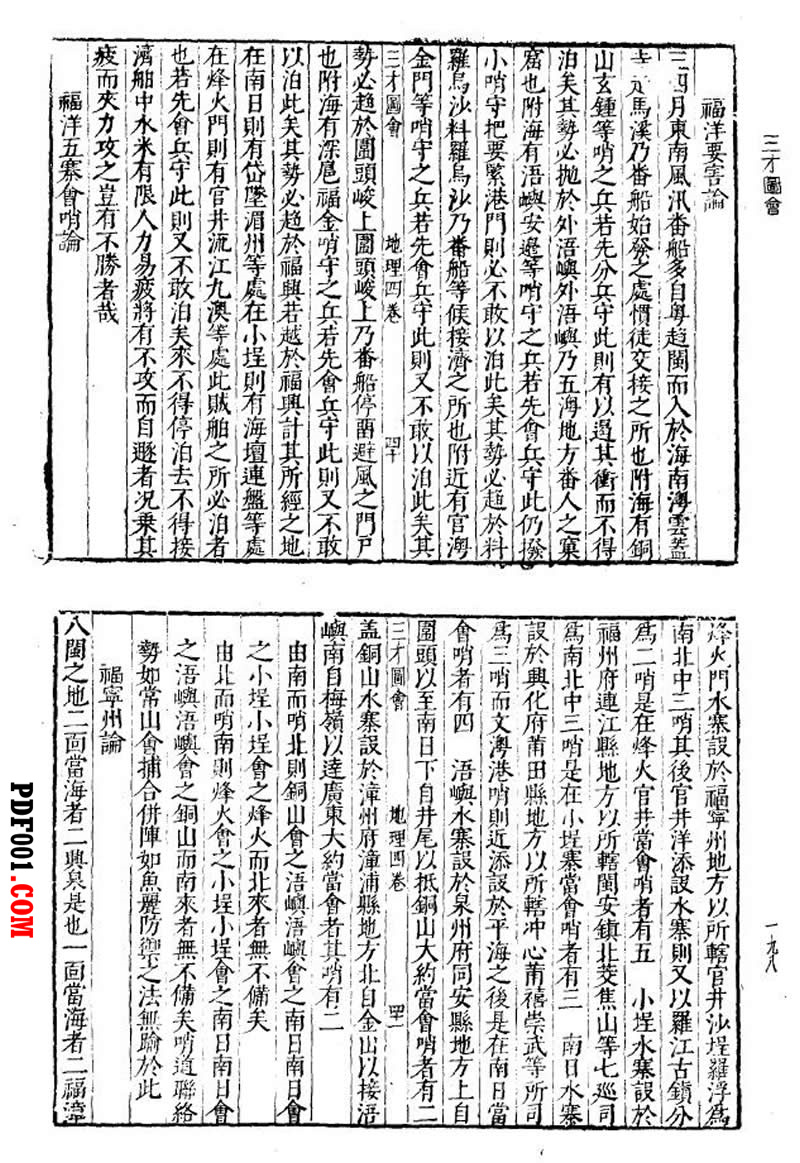 三才圖會
福洋要害論
三四月東南風汛番船多自粵趨閩而入於海南澚雲蓋
走馬溪乃番船始發之處慣徒交接之所也附海有銅
山玄鍾等哨之兵若先分兵守此則有以遏其衝而不得
泊矣其勢必拋於外浯嶼外浯嶼乃五澚地方番人之窠
窟也附海有浯嶼安邊等哨守之兵若先會兵守此仍撥
小哨守把要緊港門則必不敢以泊此矣其勢必趨於料
羅烏沙料羅烏沙乃番船等候接濟之所也附近有官澚
金門等哨守之兵若先會兵守此則又不敢以泊此矣其
三才圖會 地理四卷 四十
勢必趨於圍頭峻上圍頭峻上乃番船停留避風之門戶
也附海有深扈福金哨守之兵若先會兵守此則又不敢
以泊此矣其勢必趨於福興若越於福興計其所經之地
在南日則有岱墜湄州等處在小埕則有海壇連盤等處
在烽火門則有官井流江九澳等處此賊船之所必泊者
也若先會兵守此則又不敢泊矣來不得停泊去不得接
濟船中水米有限人力易疲將有不攻而自遯者况乗其
疲而夾力攻之豈有不勝者哉
福洋五寨會哨論
烽火門水寨設於福寧州地方以所轄官井沙埕羅浮爲
南北中三哨其後官井洋添設水寨則又以羅江古鎮分
爲二哨是在烽火官井當會哨者有五 小埕水寨設於
福州府連江縣地方以所轄閩安鎮北茭焦山等七巡司
爲南北中三哨是在小埕寨當會哨者有三 南日水寨
設於興化府莆田縣地方以所轄冲心莆禧崇武等所司
爲三哨而文澚港哨則近添設於平海之後是在南日當
會哨者有四 浯嶼水寨設於泉州府同安縣地方上自
圍頭以至南日下自井尾以抵銅山大約當會哨者有二
三才圖會 地理四卷 四十一
盖銅山水寨設於漳州府漳浦縣地方北自金山以接浯
嶼南自梅嶺以達廣東大約當會者其哨有二
由南而哨北則銅山會之浯嶼浯嶼會之南日南日會
之小埕小埕會之烽火而北來者無不備矣
由北而哨南則烽火會之小埕小埕會之南日南日會
之浯嶼浯嶼會之銅山而南來者無不備矣哨道聯絡
勢如常山會捕合併陣如魚麗防禦之法無踰於此
福寧州論
八閩之地二面當海者二興泉是也一面當海者二福漳
一九八
PDF001.COM